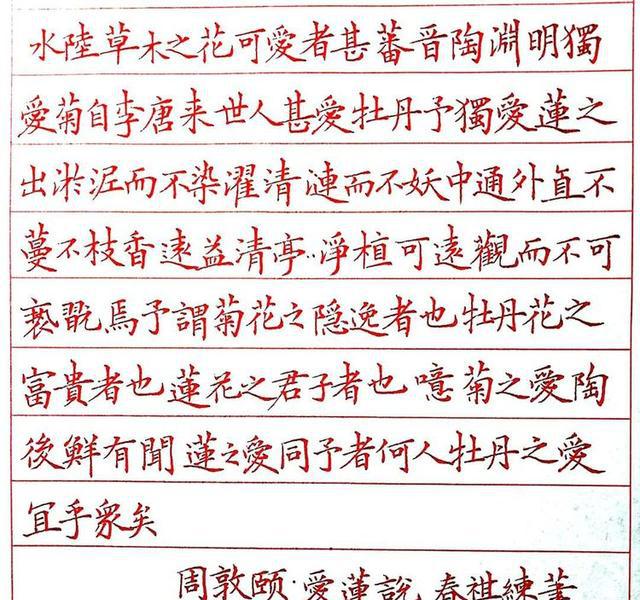 水陸草木之花可愛者甚蕃晉陶淵明獨
愛菊自李唐来世人甚愛牡丹予獨愛蓮之
出淤泥而不染濯清漣而不妖中通外直不
蔓不枝香遠益清亭‥淨植可遠觀而不可
褻翫焉予謂菊花之隐逸者也牡丹花之
富貴者也蓮花之君子者也噫菊之愛陶
後鮮有聞蓮之愛同予者何人牡丹之愛
宜乎衆矣
周敦颐·愛蓮說 春祺練筆